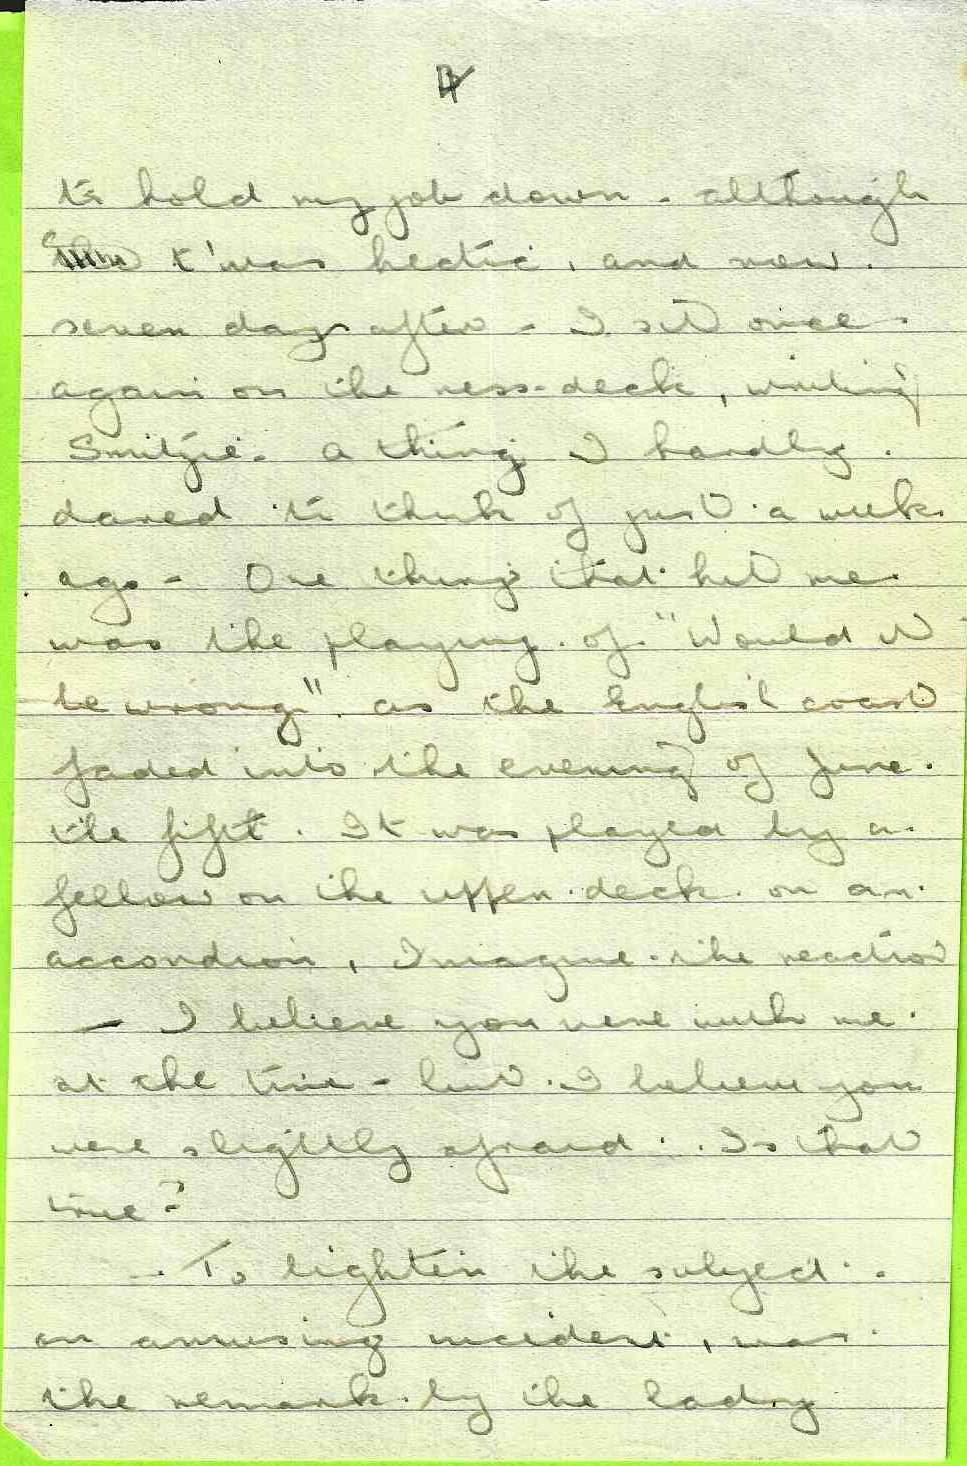 4
to hold my job down - although
t'was hectic, and now.
seven days after - I sit once.
again on the mess-deck, writing
Smitzie. a thing I hardly.
dared to think of just a week.
ago - One thing that hit me.
was the playing of "Would it
be wrong" as the English coast
faded into the evening of June.
the fifth. It was played by a.
fellow on the upper deck on an.
accordion, Imagine the reaction
— I believe you were with me.
at the time - but I believe you
were slightly afraid. Is that
true?
- To lighten the subject.
an amusing incident, was.
the remark by the lady